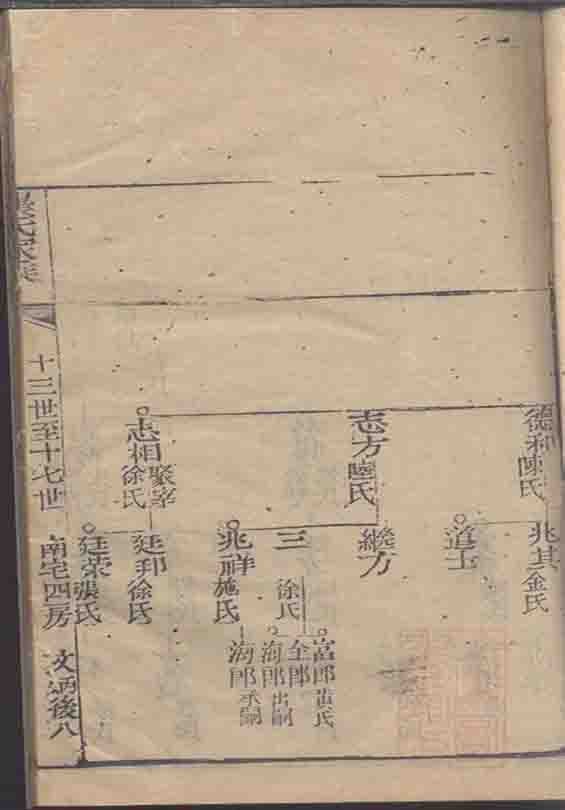 德和 陳氏
兆其 金氏
道士
志方 陸氏
繼方
三 徐氏
富郎 黃氏
全郎
海郎 出嗣
兆祥 施氏
海郎 承嗣
志相 聚宰 徐氏
廷邦 徐氏
廷榮 張氏
氏家
十三世至十七世
南宅四房
文炳後八